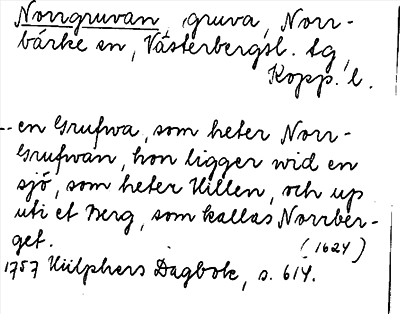 Norrgruvan, gruva, Norr-
bärke sn, Västerbergsl. tg,
Kopp. l.
-- en Grufwa, som heter Norr-
Grufwan, hon ligger wid en
sjö, som heter Hillen, och up
uti et Berg, som kallas Norrber-
get. (1624)
1757 Hülphers Dagbok, s. 614.